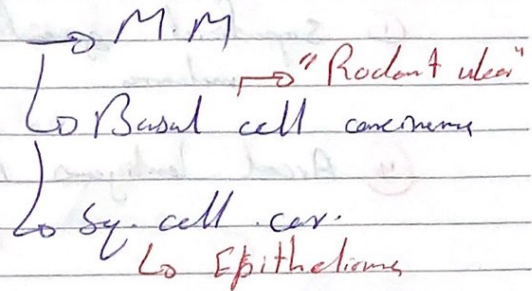 → M.M
→ "Rodent ulcer"
↳ Basal cell carcinoma
↳ Sq. cell car.
↳ Epithelioma